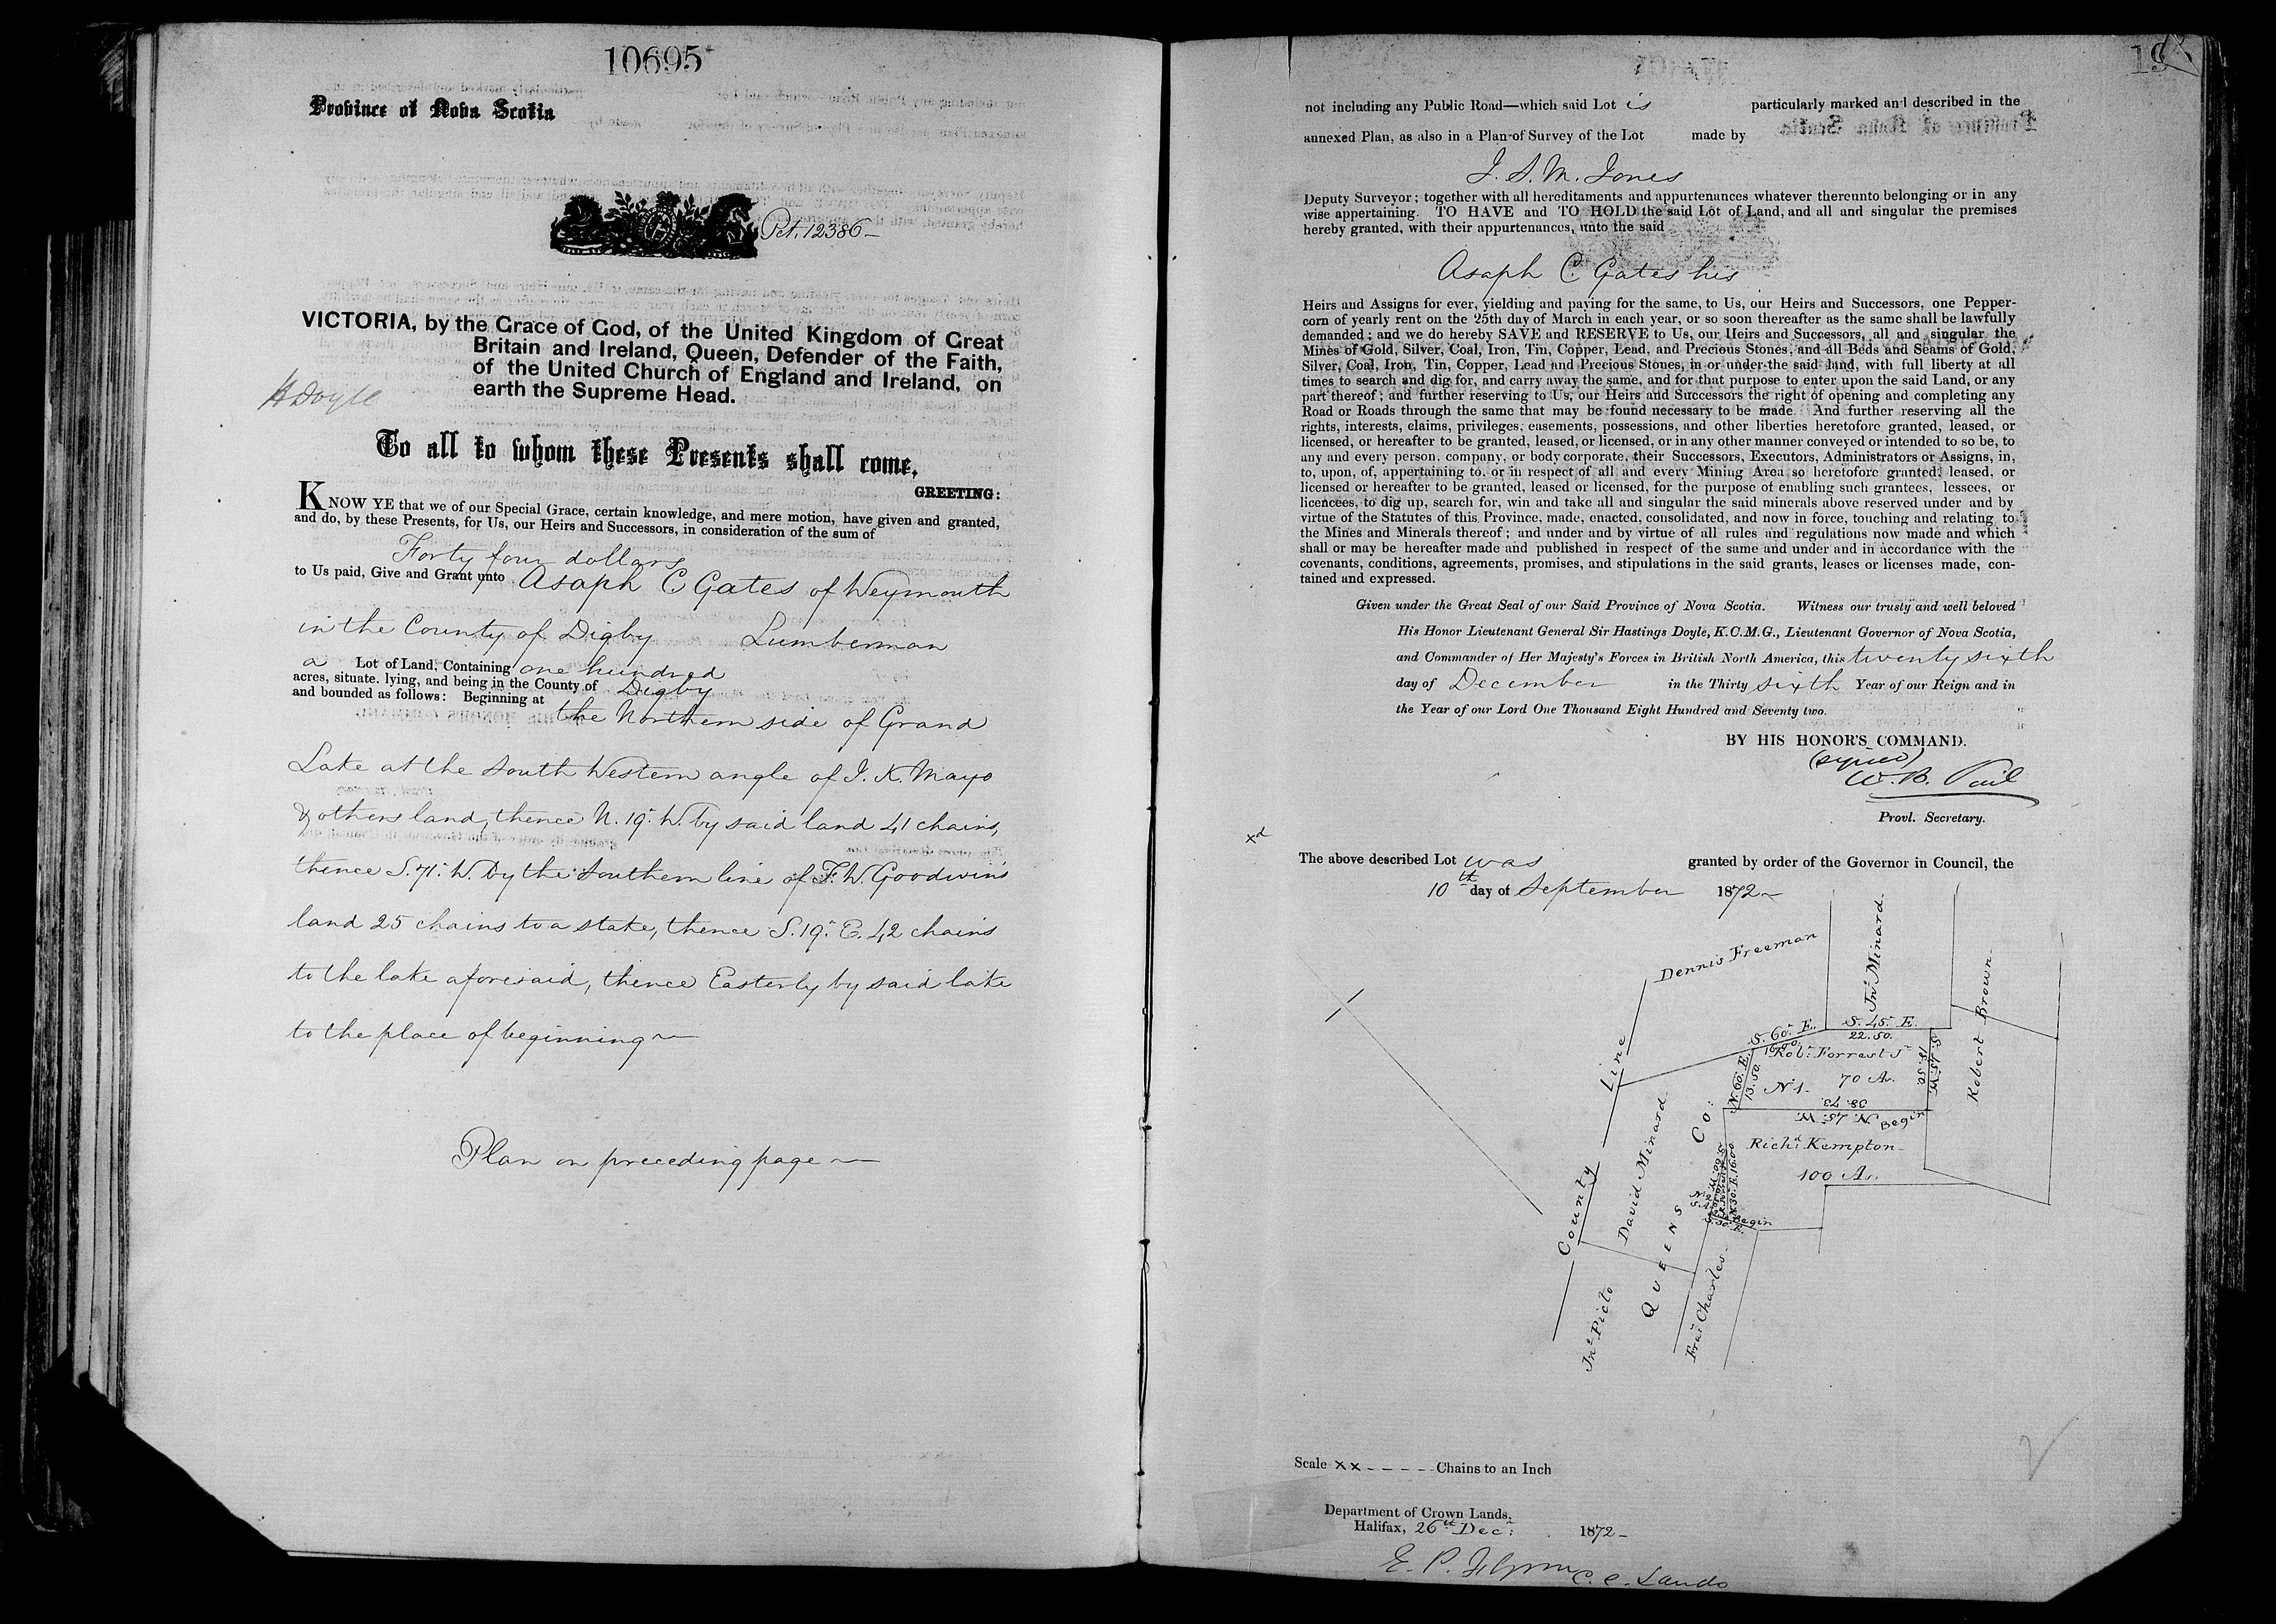 10695
Province of Nova Scotia
Pet. 12386
VICTORIA, by the Grace of God, of the United Kingdom of Great
Britain and Ireland, Queen, Defender of the Faith,
of the United Church of England and Ireland, on
earth the Supreme Head.
H Doyle
To all to whom these Presents shall come,
GREETING:
KNOW YE that we of our Special Grace, certain knowledge, and mere motion, have given and granted,
and do, by these Presents, for Us, our Heirs and Successors, in consideration of the sum of
Forty four dollars
to Us paid, Give and Grant unto Asaph C Gates of Weymouth
in the County of Digby Lumberman
a Lot of Land, Containing one hundred
acres, situate, lying, and being in the County of Digby
and bounded as follows: Beginning at
the Northern side of Grand
Lake at the South Western angle of J. K. Mayo
& others land, thence N. 19° W. by said land 41 chains,
thence S. 71° W. by the Southern line of F. W. Goodwin's
land 25 chains to a stake, thence S. 19° E. 42 chains
to the lake aforesaid, thence Easterly by said lake
to the place of beginning
Plan on preceding page
not including any Public Road—which said Lot is particularly marked and described in the
annexed Plan, as also in a Plan of Survey of the Lot made by
J. S. M. Jones
Deputy Surveyor; together with all hereditaments and appurtenances whatever thereunto belonging or in any
wise appertaining. TO HAVE and TO HOLD the said Lot of Land, and all and singular the premises
hereby granted, with their appurtenances, unto the said
Asaph C. Gates his
Heirs and Assigns for ever, yielding and paying for the same, to Us, our Heirs and Successors, one Pepper-
corn of yearly rent on the 25th day of March in each year, or so soon thereafter as the same shall be lawfully
demanded; and we do hereby SAVE and RESERVE to Us, our Heirs and Successors, all and singular the
Mines of Gold, Silver, Coal, Iron, Tin, Copper, Lead, and Precious Stones, and all Beds and Seams of Gold,
Silver, Coal, Iron, Tin, Copper, Lead and Precious Stones, in or under the said land, with full liberty at all
times to search and dig for, and carry away the same, and for that purpose to enter upon the said Land, or any
part thereof; and further reserving to Us, our Heirs and Successors the right of opening and completing any
Road or Roads through the same that may be found necessary to be made. And further reserving all the
rights, interests, claims, privileges, easements, possessions, and other liberties heretofore granted, leased, or
licensed, or hereafter to be granted, leased, or licensed, or in any other manner conveyed or intended to so be, to
any and every person, company, or body corporate, their Successors, Executors, Administrators or Assigns, in,
to, upon, of, appertaining to, or in respect of all and every Mining Area so heretofore granted, leased, or
licensed or hereafter to be granted, leased or licensed, for the purpose of enabling such grantees, lessees, or
licencees, to dig up, search for, win and take all and singular the said minerals above reserved under and by
virtue of the Statutes of this Province, made, enacted, consolidated, and now in force, touching and relating to
the Mines and Minerals thereof; and under and by virtue of all rules and regulations now made and which
shall or may be hereafter made and published in respect of the same and under and in accordance with the
covenants, conditions, agreements, promises, and stipulations in the said grants, leases or licenses made, con-
tained and expressed.
Given under the Great Seal of our Said Province of Nova Scotia. Witness our trusty and well beloved
His Honor Lieutenant General Sir Hastings Doyle, K.C.M.G., Lieutenant Governor of Nova Scotia,
and Commander of Her Majesty's Forces in British North America, this twenty sixth
day of December in the Thirty sixth Year of our Reign and in
the Year of our Lord One Thousand Eight Hundred and Seventy two.
BY HIS HONOR'S COMMAND.
(signed)
W. B. Vail
Provl. Secretary.
xd
The above described Lot was granted by order of the Governor in Council, the
10th day of September 1872
Dennis Freeman
Jno Minard
Robert Brown
S. 60° E.
16.00
S. 45° E.
22.50
Robt Forrest Jr
No 1 70 As.
N. 60° E.
13.50
S. 45° W.
18.50
38.73
N. 45° W.
Begin
Richd Kempton
100 As.
County Line
David Minard
QUEENS CO:
N. 30. E. 16.00
Begin
Jno Picto
Fras Charles
Scale xx Chains to an Inch
Department of Crown Lands,
Halifax, 26th Decr 1872
C. C. Lands